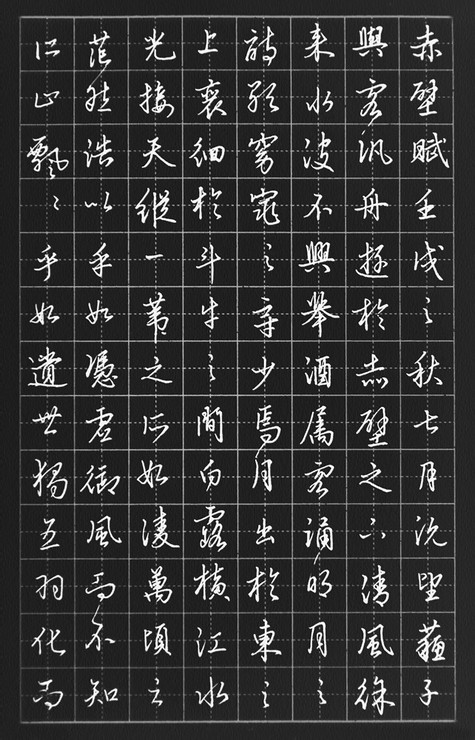 赤壁賦壬戌之秋七月既望蘓子
與客汎舟遊於赤壁之下清風徐
來水波不興舉酒属客誦明月之
詩歌窈窕之章少焉月出於東之
上裵徊於斗牛之間白露橫江水
光接天縱一葦之所如淩萬頃之
茫然浩々乎如憑虛御風而不知
所止飄々乎如遺世獨立羽化而